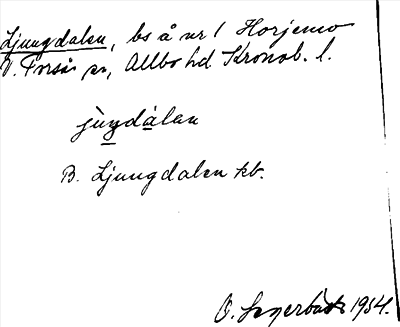 Ljungdalen, bs å nr 1 Horjemo
V. Torsås sn, Allbo hd. Kronob. l.
jùngdàlan
B. Ljungdalen kb.
O. 1934.